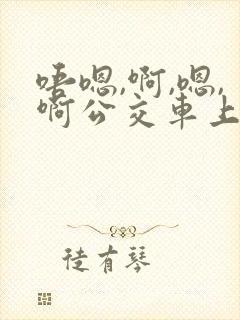 唔嗯,啊,嗯,
啊公交車上
徒有琴